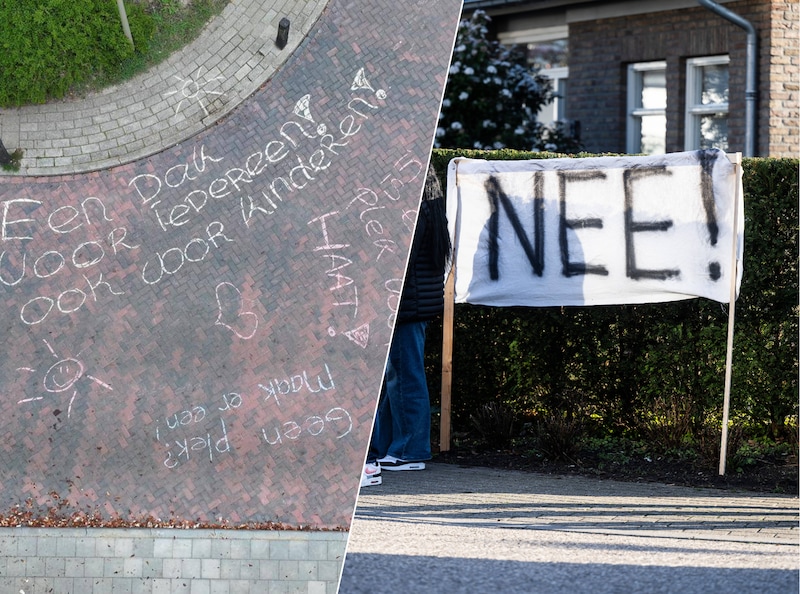 Een Dak
voor iedereen!
ook voor kinderen!
plek voor
HAAT!
Geen plek?
Maak er een!
NEE!